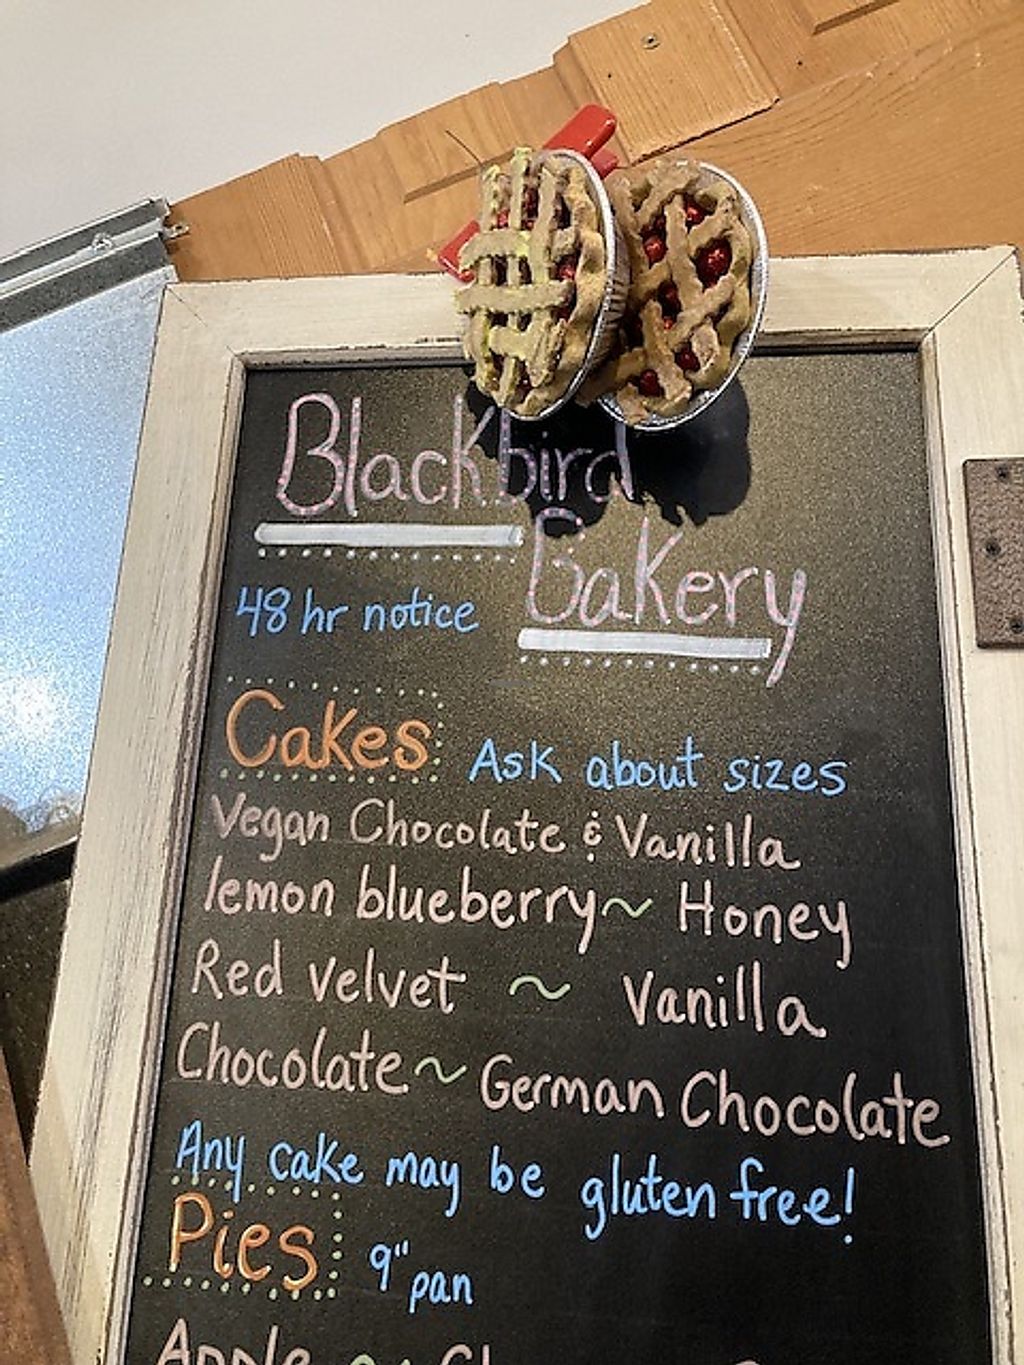 Blackbird
Bakery
48 hr notice
Cakes Ask about sizes
Vegan Chocolate & Vanilla
lemon blueberry ~ Honey
Red Velvet ~ Vanilla
Chocolate ~ German Chocolate
Any cake may be gluten free!
Pies 9" pan
Apple ~